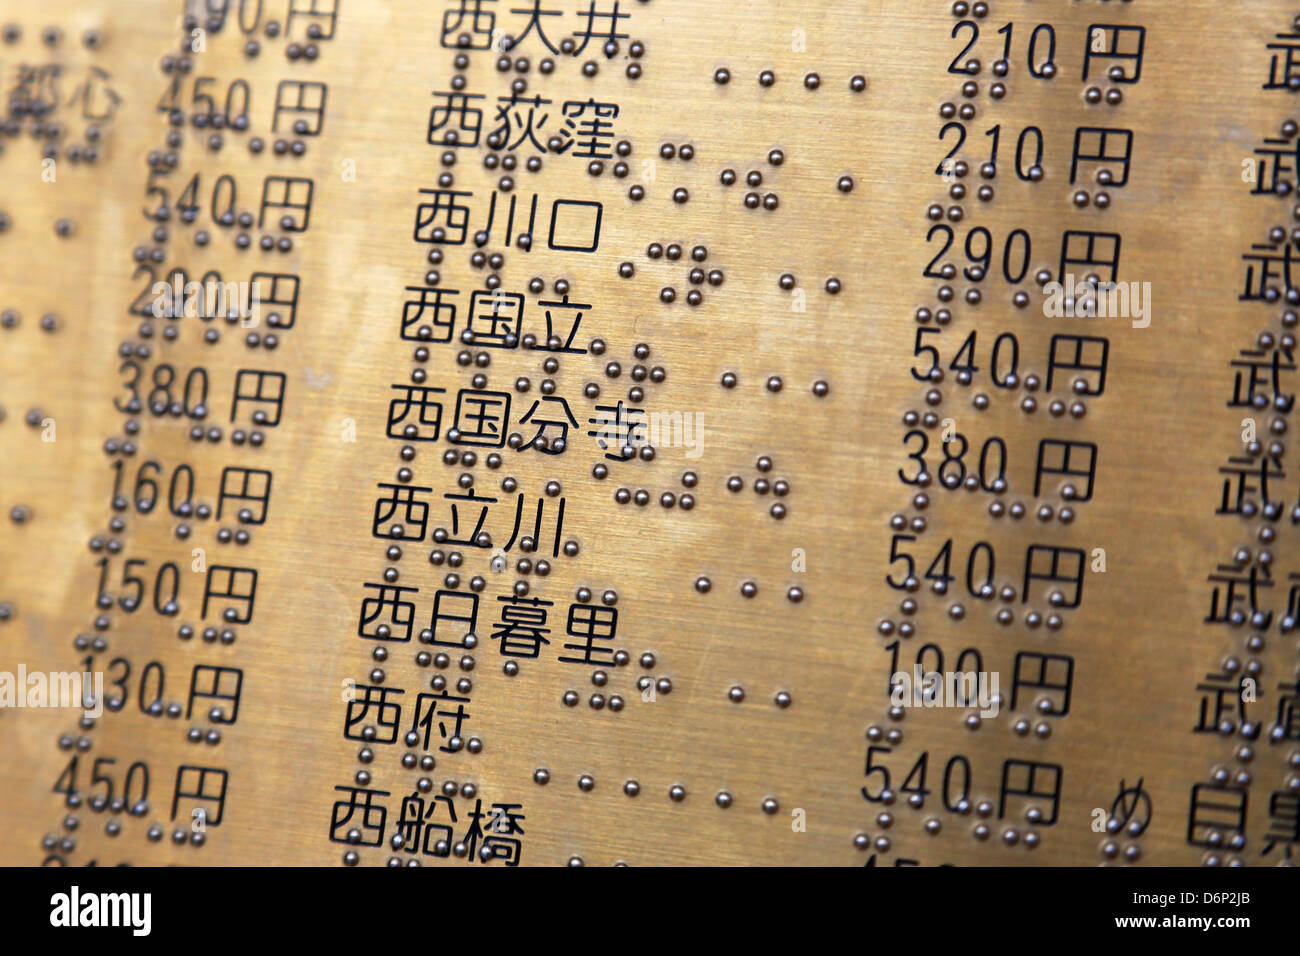 90円 西大井 210円 武
都心 450円 西荻窪 210円 武
540円 西川口 290円 武
290円 西国立 540円 武
380円 西国分寺 380円 武
160円 西立川 540円 武
150円 西日暮里 190円 武
130円 西府 540円 め 目
450円 西船橋
alamy
Image ID: D6P2JB
www.alamy.com